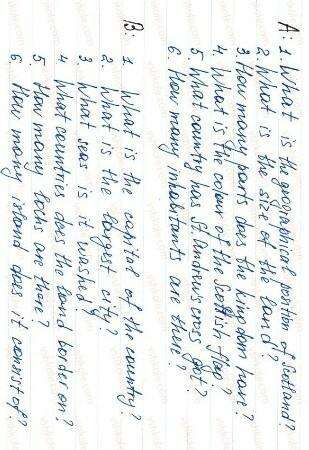 A: 1. What is the geographical position of Scotland?
2. What is the size of the land?
3 How many parts does the kingdom have?
4 What is the colour of the Scottish flag?
5. What country has St. Andrew's cross got?
6. How many inhabitants are there?
B: 1. What is the capital of the country?
2. What is the largest city?
3 What seas is it washed?
4 What countries does the land border on?
5 How many lochs are there?
6. How many island does it consist of?